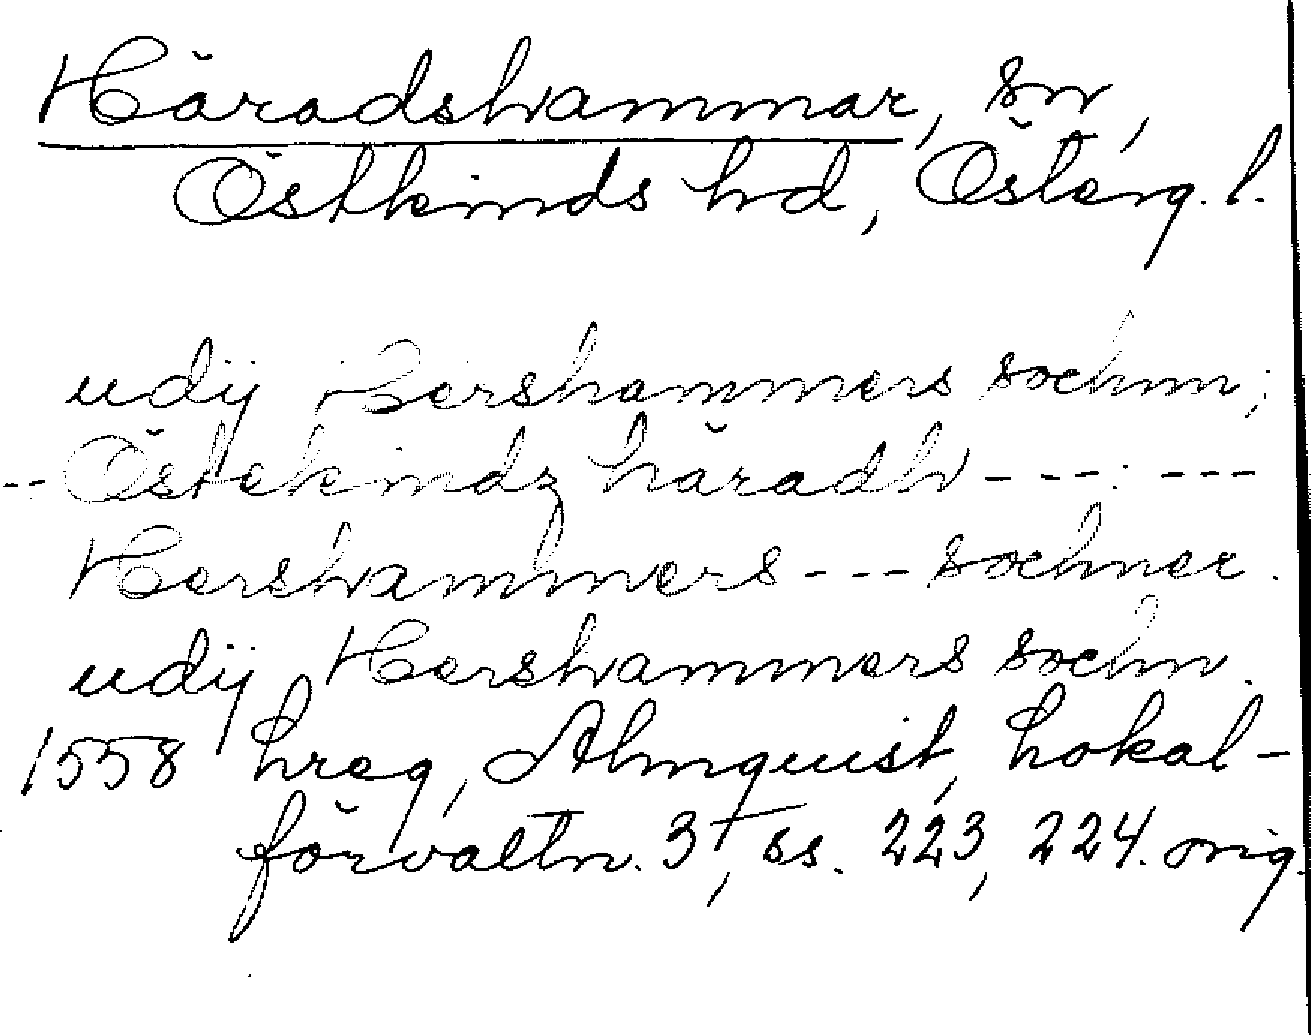 Häradshammar, sn,
Östkinds hd, Österg. l.
udij Hershammers sochnn;
--Östekindz häradh---:---
Hershammers---sochner.
udij Hershammers sochn.
1558 hreg, Almquist, Lokal-
förvaltn. 3, ss. 223, 224. orig.